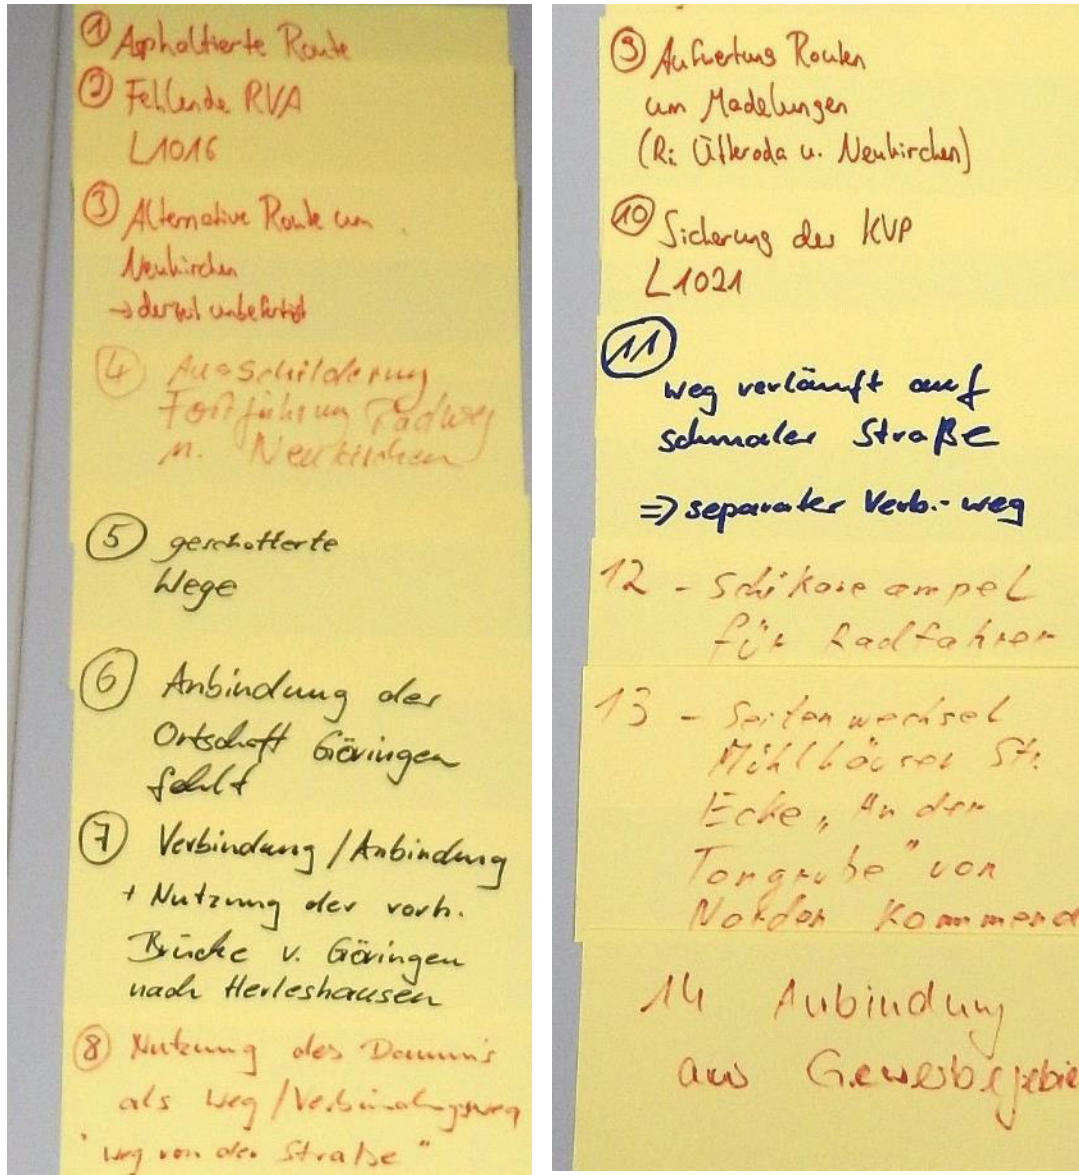 ① Asphaltierte Route
② Fehlende RVA
L1016
③ Alternative Route um
Neukirchen
→ derzeit unbefestigt
④ Ausschilderung
Fortführung Radweg
n. Neukirchen
⑤ geschotterte
Wege
⑥ Anbindung der
Ortschaft Göringen
fehlt
⑦ Verbindung / Anbindung
+ Nutzung der vorh.
Brücke v. Göringen
nach Herleshausen
⑧ Nutzung des Damms
als Weg / Verbindungsweg
"weg von der Straße"
⑨ Aufwertung Routen
um Madelungen
(Ri Ütteroda u. Neukirchen)
⑩ Sicherung des KVP
L1021
⑪
weg verläuft auf
schmaler Straße
=> separater Verb.-weg
12 - Schikane ampel
für Radfahrer
13 - Seitenwechsel
Mühlhäuser Str.
Ecke „An der
Tongrube" von
Norden kommend
14 Anbindung
ans Gewerbegebie